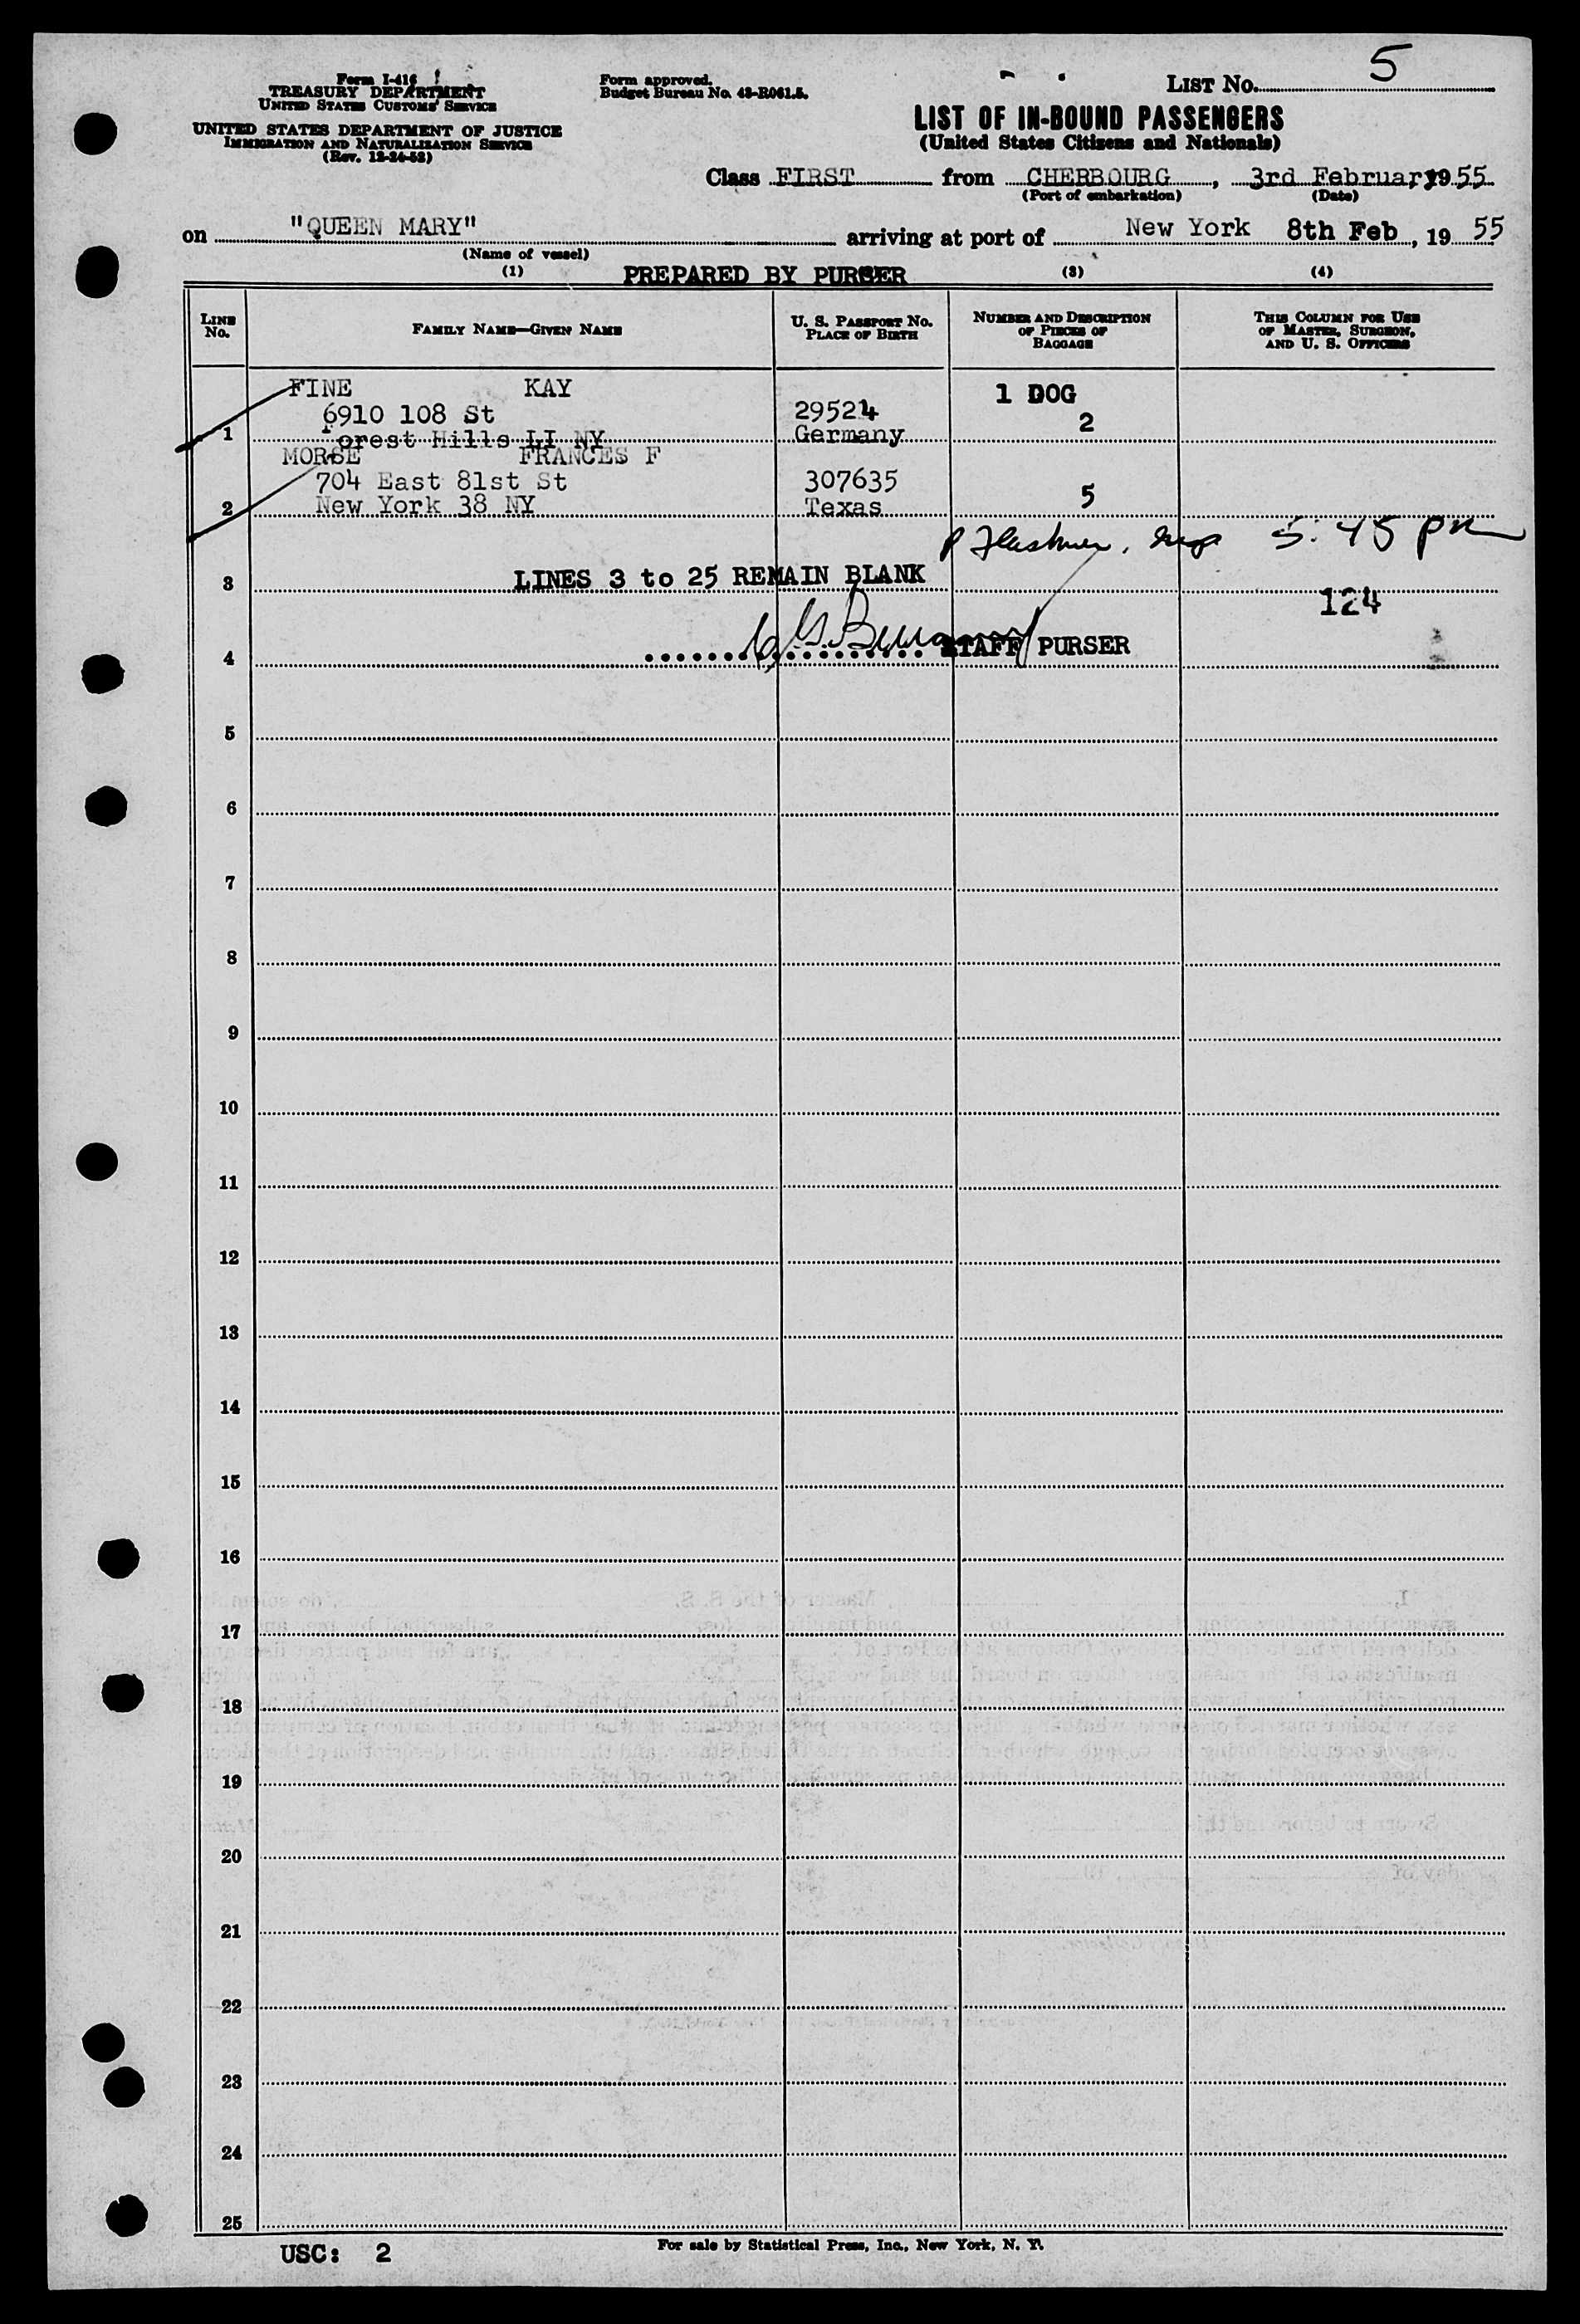 5
Form I-416
TREASURY DEPARTMENT
UNITED STATES CUSTOMS SERVICE
UNITED STATES DEPARTMENT OF JUSTICE
IMMIGRATION AND NATURALIZATION SERVICE
(Rev. 12-24-52)
Form approved.
Budget Bureau No. 43-R061.5.
LIST No.
LIST OF IN-BOUND PASSENGERS
(United States Citizens and Nationals)
Class FIRST from CHERBOURG, 3rd February, 1955
(Port of embarkation) (Date)
on "QUEEN MARY" arriving at port of New York 8th Feb, 19 55
(Name of vessel)
(1) PREPARED BY PURSER (3) (4)
LINE No. FAMILY NAME—GIVEN NAME U. S. PASSPORT No. PLACE OF BIRTH NUMBER AND DESCRIPTION OF PIECES OF BAGGAGE THIS COLUMN FOR USE OF MASTER, SURGEON, AND U. S. OFFICERS
FINE KAY 1 DOG
6910 108 St 29524 2
1 Forest Hills LI NY Germany
MORSE FRANCES F
704 East 81st St 307635 5
2 New York 38 NY Texas
5:45 pm
3 LINES 3 to 25 REMAIN BLANK 124
4 STAFF PURSER
5
6
7
8
9
10
11
12
13
14
15
16
17
18
19
20
21
22
23
24
25
USC: 2 For sale by Statistical Press, Inc., New York, N. Y.